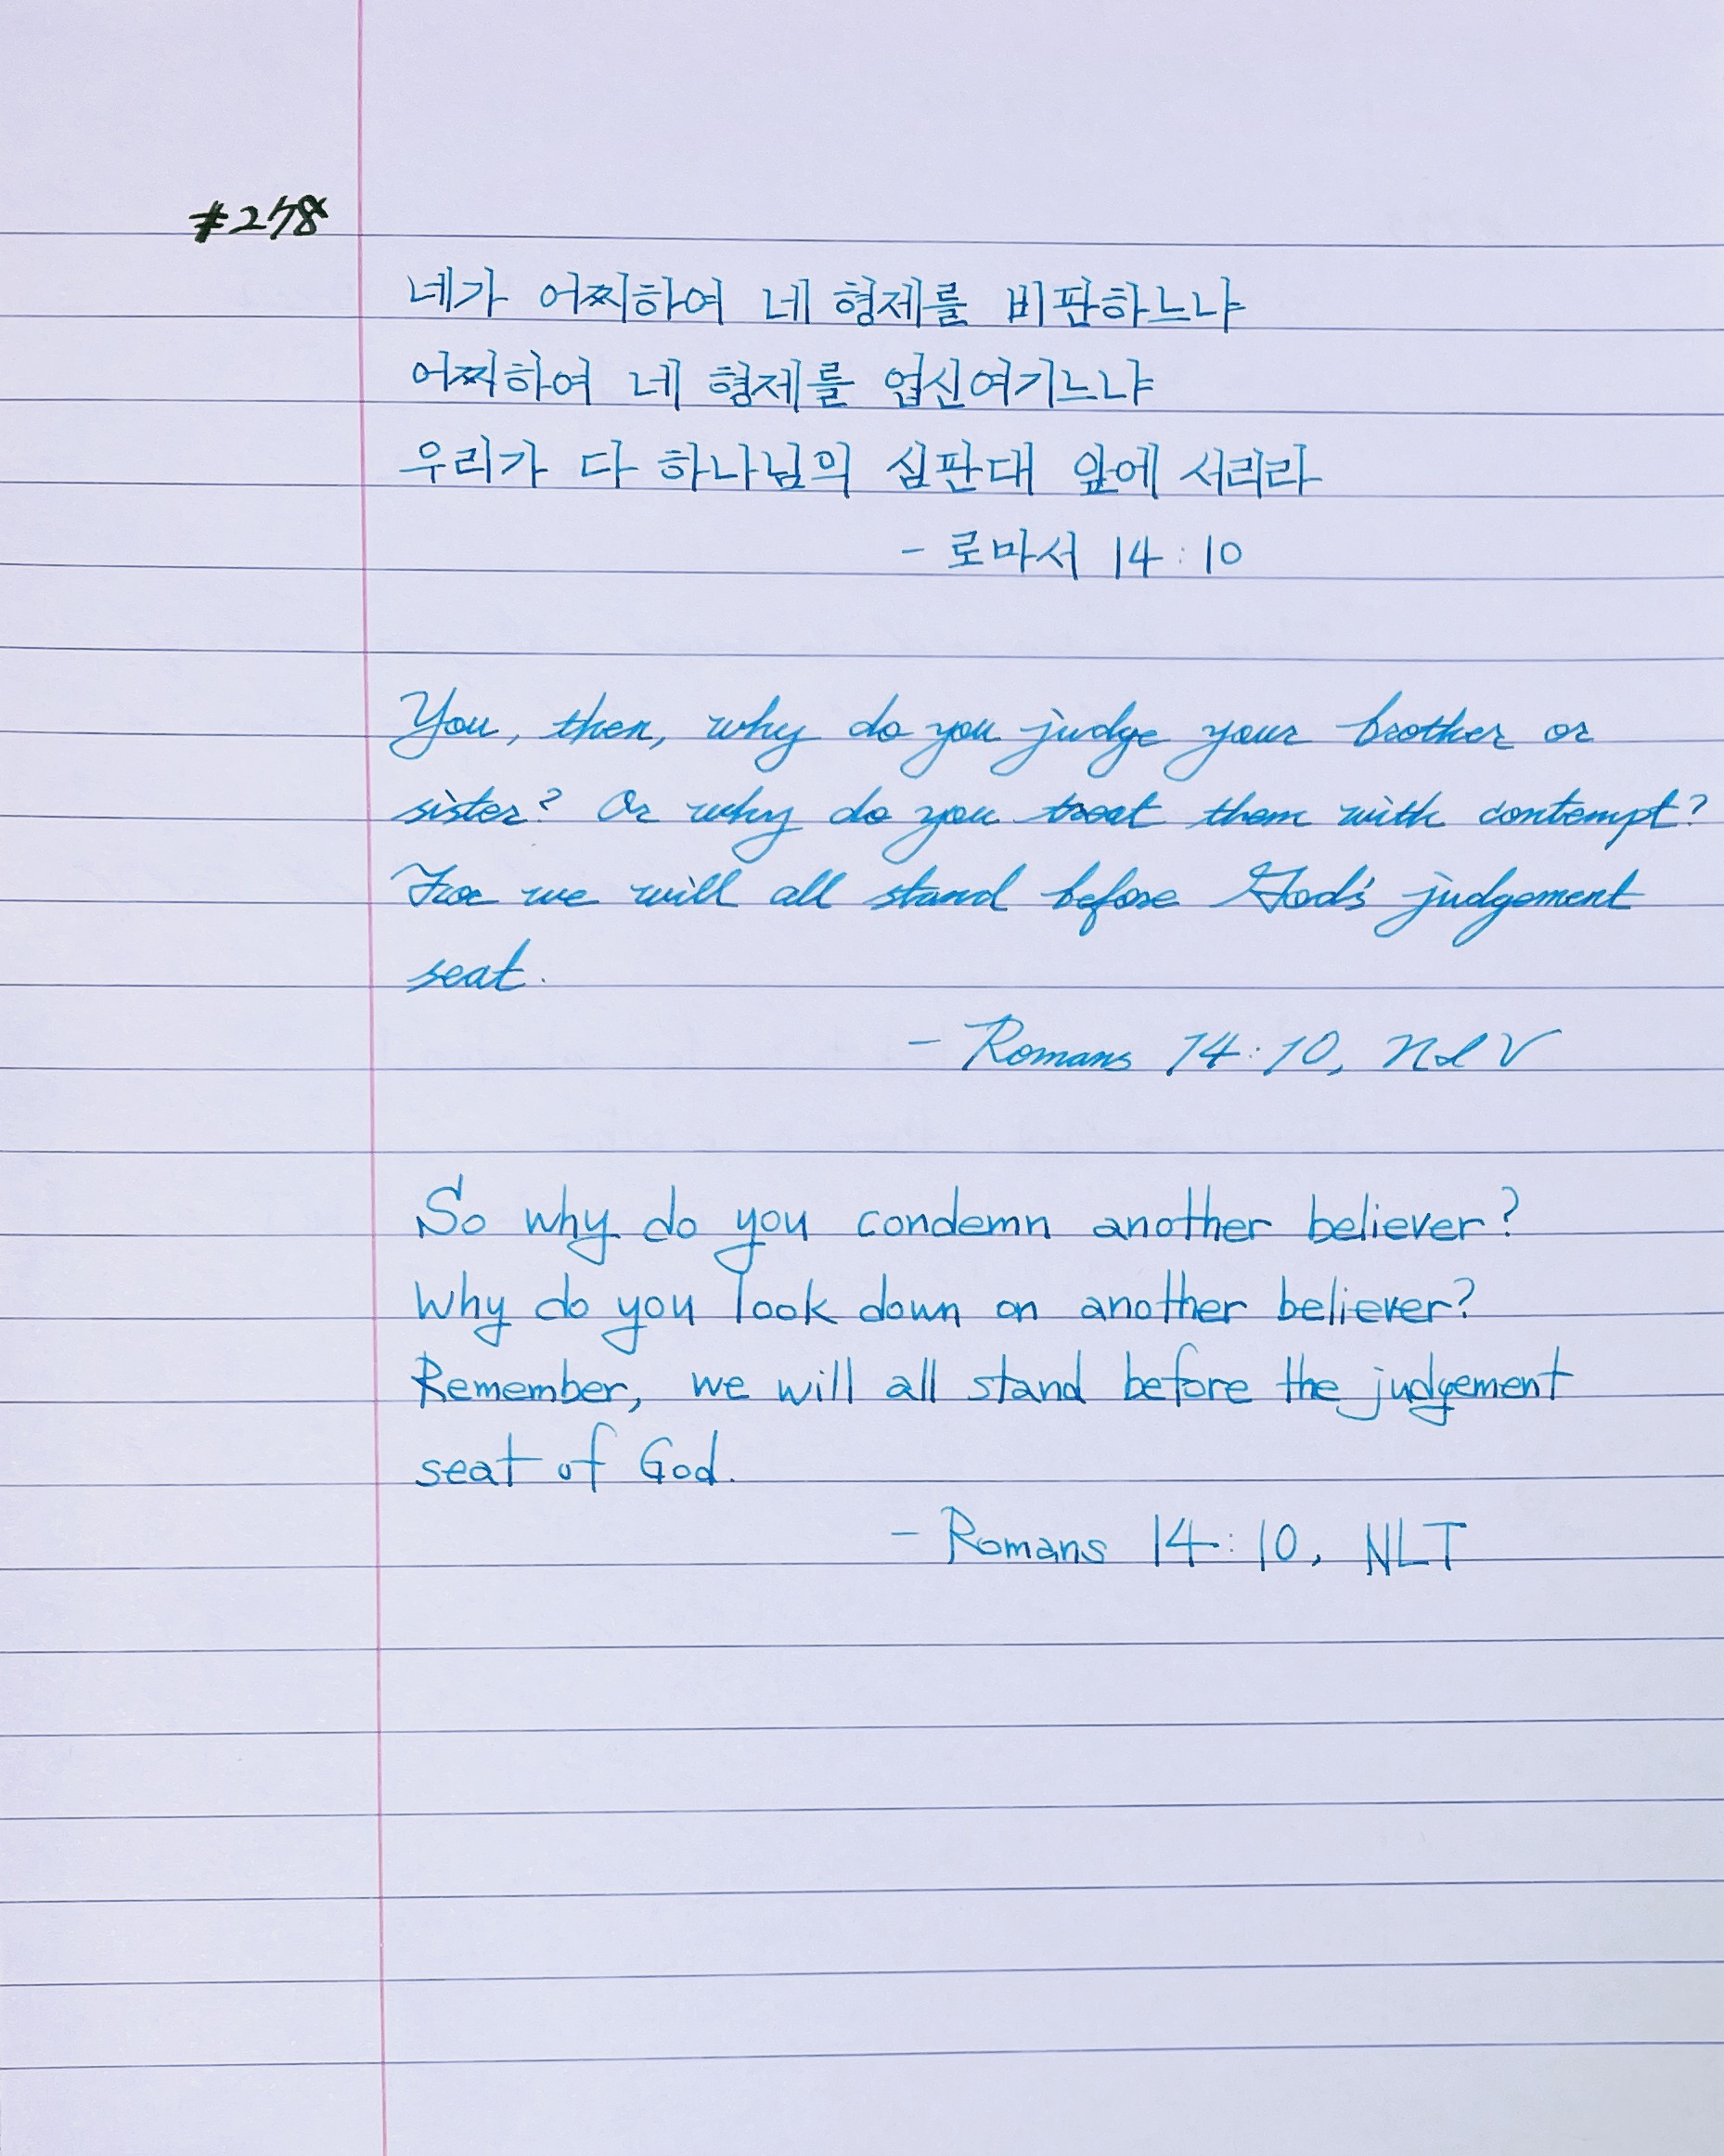 #278
네가 어찌하여 네 형제를 비판하느냐
어찌하여 네 형제를 업신여기느냐
우리가 다 하나님의 심판대 앞에 서리라
- 로마서 14:10
You, then, why do you judge your brother or
sister? Or why do you treat them with contempt?
For we will all stand before God's judgement
seat.
- Romans 14:10, NIV
So why do you condemn another believer?
Why do you look down on another believer?
Remember, we will all stand before the judgement
seat of God.
- Romans 14:10, NLT